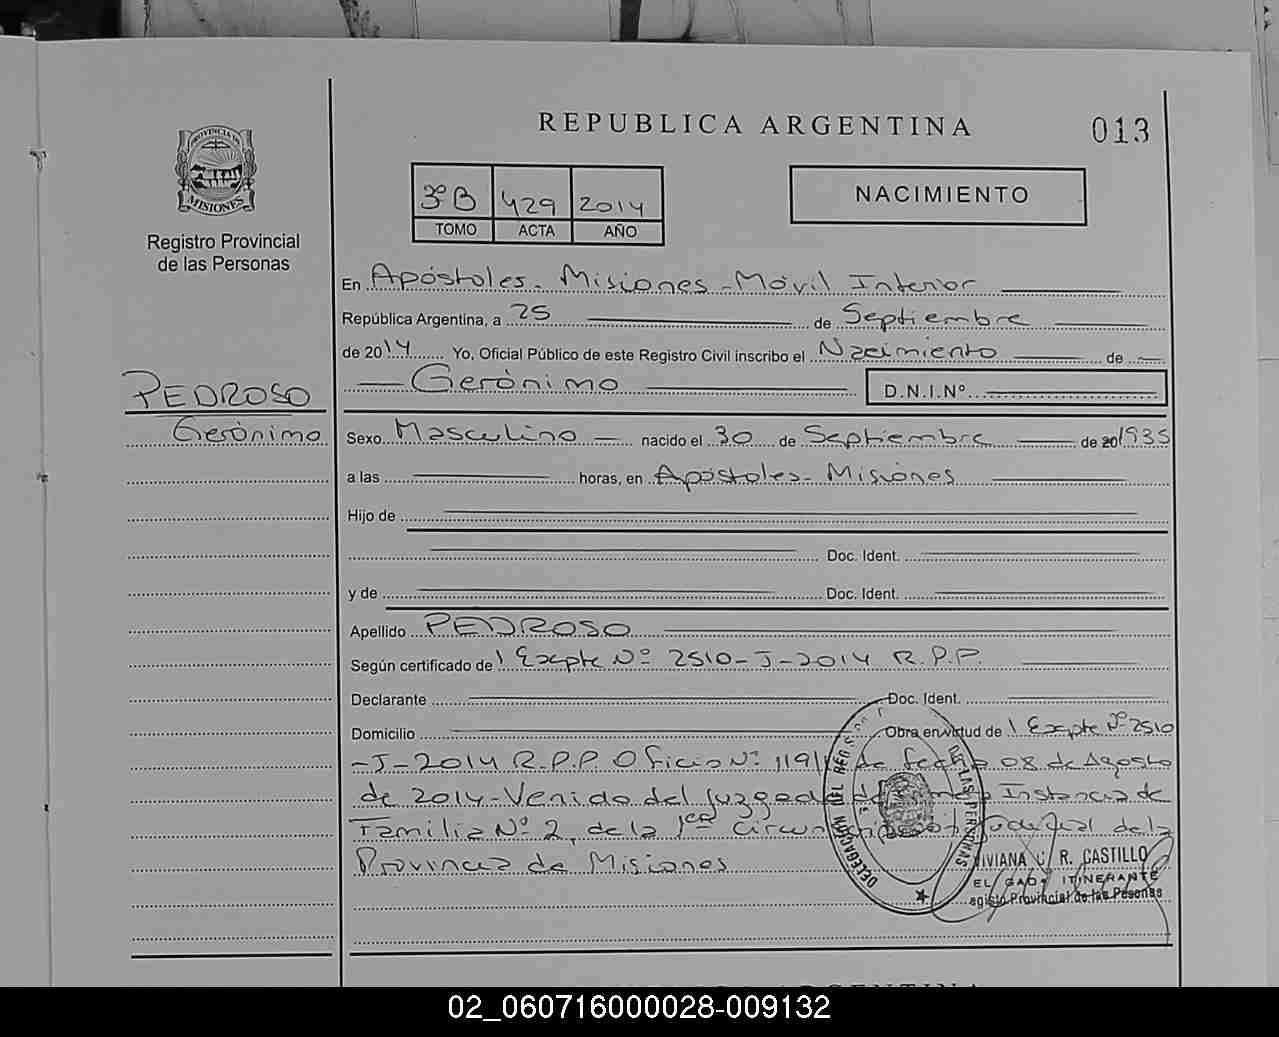 REPUBLICA ARGENTINA
013
PROVINCIA DE
MISIONES
Registro Provincial
de las Personas
3º B 429 2014
TOMO ACTA AÑO
NACIMIENTO
En Apóstoles - Misiones - Móvil Interior
República Argentina, a 25 de Septiembre
de 2014 Yo, Oficial Público de este Registro Civil inscribo el Nacimiento de
Gerónimo D.N.I.Nº
PEDROSO
Gerónimo
Sexo Masculino nacido el 30 de Septiembre de 20 1935
a las horas, en Apóstoles - Misiones
Hijo de
Doc. Ident.
y de Doc. Ident.
Apellido PEDROSO
Según certificado de 1 Expte Nº 2510-J-2014 R.P.P.
Declarante Doc. Ident.
Domicilio Obra en virtud de 1 Expte Nº 2510
-J-2014 R.P.P. Oficio Nº 119/ de fecha 08 de Agosto
de 2014 - Venido del Juzgado de Instancia de
Familia Nº 2, de la 1er Judicial de la
Provincia de Misiones
DELEGACION DEL REGIS DE LAS PERSONAS
VIVIANA R. CASTILLO
ITINERANTE
Provincial de las Pesonas
ARGENTINA
02_060716000028-009132